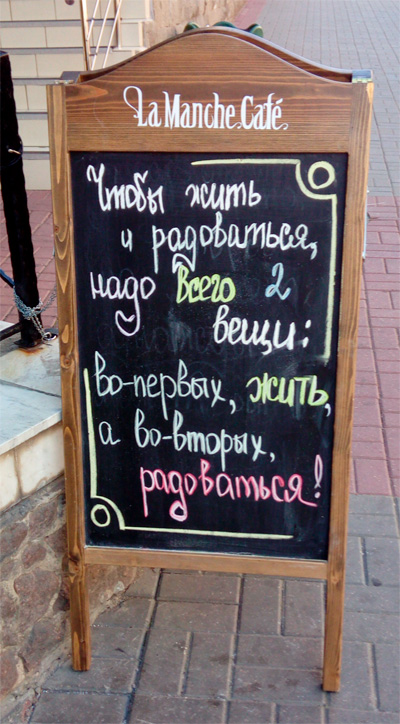 La Manche Café
Чтобы жить
и радоваться,
надо всего 2
вещи:
во-первых, жить,
а во-вторых,
радоваться!